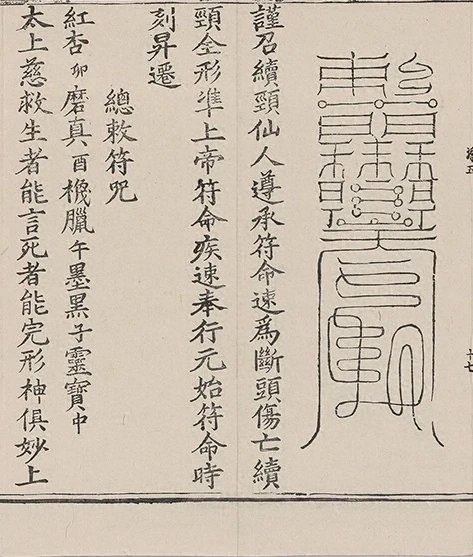 十七
謹召續頸仙人遵承符命速為斷頭傷亡續
頸全形準上帝符命疾速奉行元始符命時
刻昇遷
總敕符咒
紅杏卯磨真酉機臘午墨黑子靈寶中
太上慈救生者能言死者能完形神俱妙上